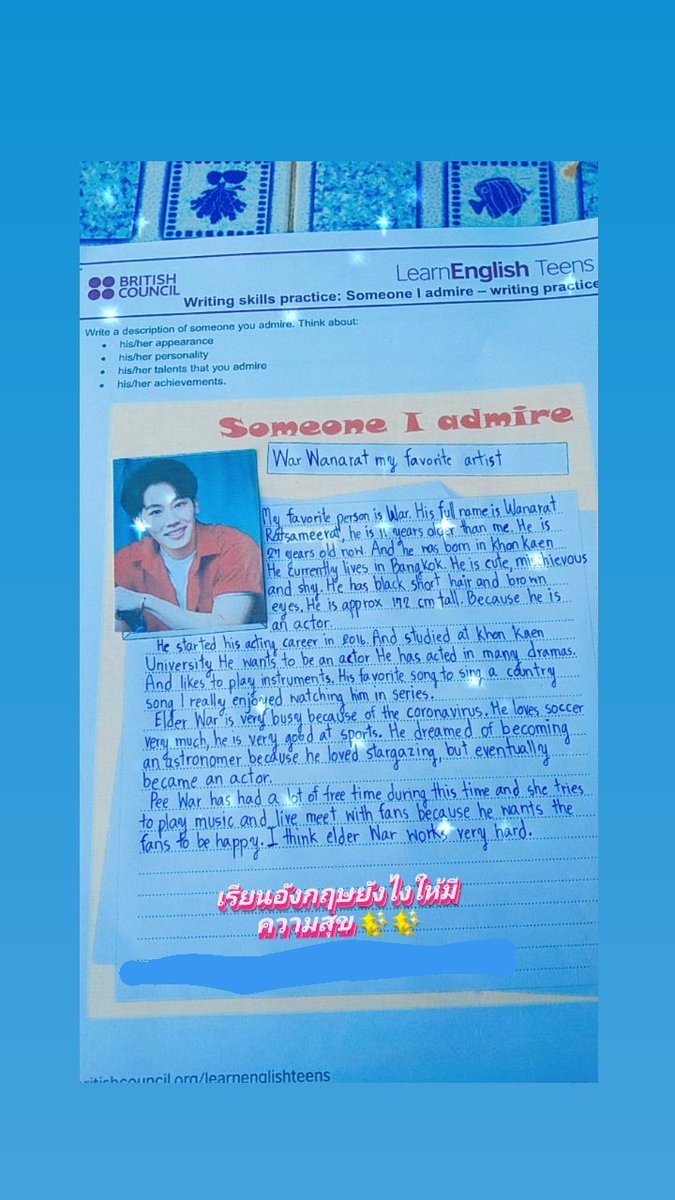 BRITISH
COUNCIL
LearnEnglish Teens
Writing skills practice: Someone I admire – writing practice
Write a description of someone you admire. Think about:
• his/her appearance
• his/her personality
• his/her talents that you admire
• his/her achievements.
Someone I admire
War Wanarat my favorite artist
My favorite person is War. His full name is Wanarat
Ratsameerat, he is 11 years older than me. He is
27 years old now. And he was born in Khon Kaen
He currently lives in Bangkok. He is cute, mischievous
and shy. He has black short hair and brown
eyes. He is approx 172 cm tall. Because he is
an actor.
He started his acting career in 2016. And studied at Khon Kaen
University He wants to be an actor He has acted in many dramas.
And likes to play instruments. His favorite song to sing a country
song I really enjoyed watching him in series.
Elder War is very busy because of the coronavirus. He loves soccer
very much, he is very good at sports. He dreamed of becoming
an astronomer because he loved stargazing, but eventually
became an actor.
Pee War has had a lot of free time during this time and she tries
to play music and live meet with fans because he wants the
fans to be happy. I think elder War works very hard.
เรียนอังกฤษยังไงให้มี
ความสุข
ritishcouncil.org/learnenglishteens